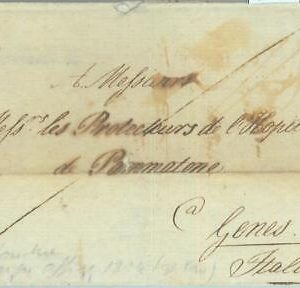 A Messieurs
Mess.rs les Protecteurs de l'Hopi
de Pammatone
a
Genes.
Itali